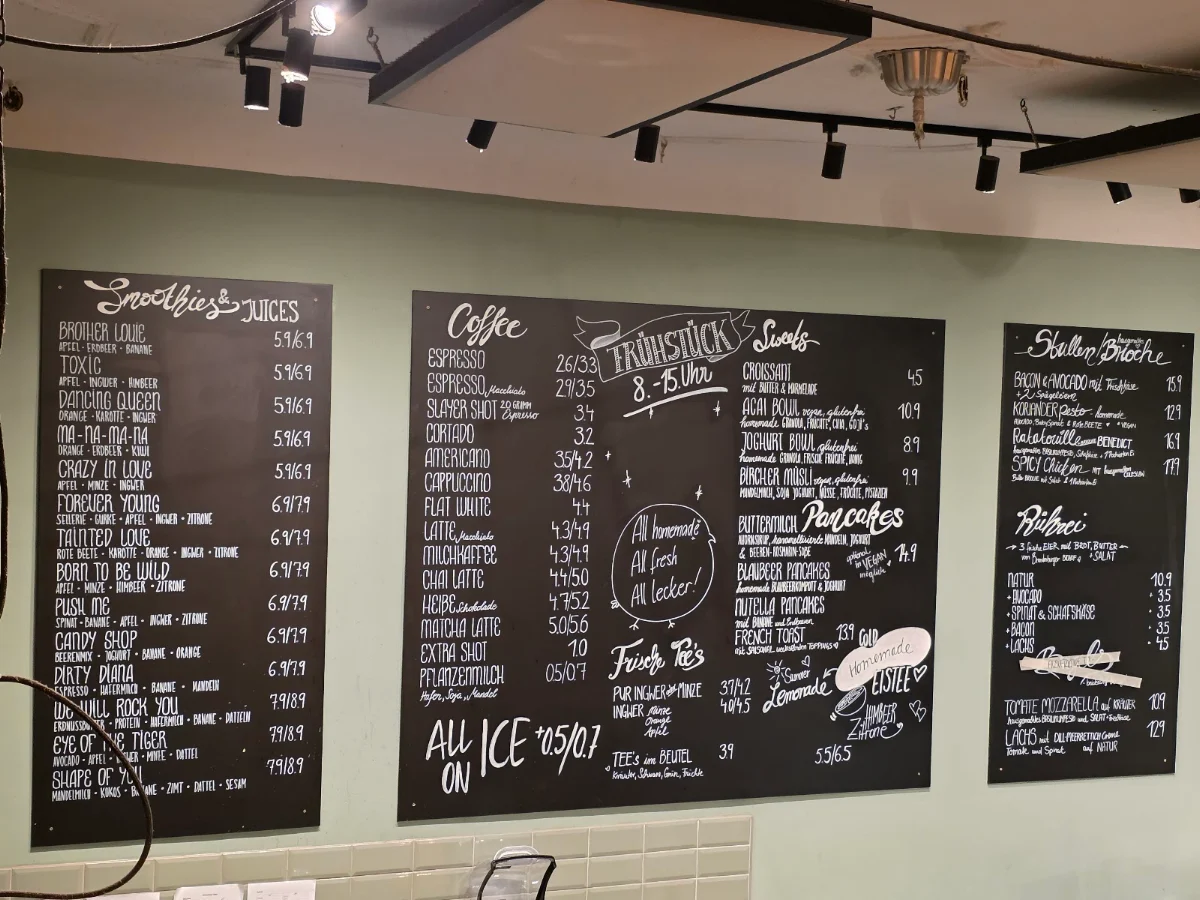 Smoothies & JUICES
BROTHER LOUIE 5.9/6.9
APFEL · ERDBEER · BANANE
TOXIC 5.9/6.9
APFEL · INGWER · HIMBEER
DANCING QUEEN 5.9/6.9
ORANGE · KAROTTE · INGWER
MA-NA-MA-NA 5.9/6.9
ORANGE · ERDBEER · KIWI
CRAZY IN LOVE 5.9/6.9
APFEL · MINZE · INGWER
FOREVER YOUNG 6.9/7.9
SELLERIE · GURKE · APFEL · INGWER · ZITRONE
TAINTED LOVE 6.9/7.9
ROTE BEETE · KAROTTE · ORANGE · INGWER · ZITRONE
BORN TO BE WILD 6.9/7.9
APFEL · MINZE · HIMBEER · ZITRONE
PUSH ME 6.9/7.9
SPINAT · BANANE · APFEL · INGWER · ZITRONE
CANDY SHOP 6.9/7.9
BEERENMIX · JOGHURT · BANANE · ORANGE
DIRTY DIANA 6.9/7.9
ESPRESSO · HAFERMILCH · BANANE · MANDELN
WE WILL ROCK YOU 7.9/8.9
ERDNUSSBUTTER · PROTEIN · HAFERMILCH · BANANE · DATTELN
EYE OF THE TIGER 7.9/8.9
AVOCADO · APFEL · INGWER · MINZE · DATTEL
SHAPE OF YOU 7.9/8.9
MANDELMILCH · KOKOS · BANANE · ZIMT · DATTEL · SESAM
Coffee
ESPRESSO 2.6/3.3
ESPRESSO Macchiato 2.9/3.5
SLAYER SHOT 20 GRAMM Espresso 3.4
CORTADO 3.2
AMERICANO 3.5/4.2
CAPPUCCINO 3.8/4.6
FLAT WHITE 4.4
LATTE Macchiato 4.3/4.9
MILCHKAFFEE 4.3/4.9
CHAI LATTE 4.4/5.0
HEIßE Schokolade 4.7/5.2
MATCHA LATTE 5.0/5.6
EXTRA SHOT 1.0
PFLANZENMILCH 0.5/0.7
Hafer, Soja, Mandel
ALL ON ICE +0.5/0.7
FRÜHSTÜCK
8.-15.Uhr
All homemade
All fresh
All lecker!
Frische Tee's
PUR INGWER oder MINZE 3.7/4.2
INGWER Minze 4.0/4.5
Orange
Apfel
TEE's im BEUTEL 3.9
Kräuter, Schwarz, Grün, Früchte
Sweets
CROISSANT 4.5
mit BUTTER & MARMELADE
ACAI BOWL vegan, glutenfrei 10.9
homemade GRANOLA, FRÜCHTE, CHIA, GOJI's
JOGHURT BOWL glutenfrei 8.9
homemade GRANOLA, FRISCHE FRÜCHTE, HONIG
BIRCHER MÜSLI vegan, glutenfrei 9.9
MANDELMILCH, SOJA JOGHURT, NÜSSE, FRÜCHTE, PISTAZIEN
BUTTERMILCH Pancakes
AHORNSIRUP, karamellisierte MANDELN, JOGHURT
& BEEREN-ROSMARIN-SOßE
optional in VEGAN möglich 14.9
BLAUBEER PANCAKES
homemade BLAUBEERKOMPOTT & JOGHURT
NUTELLA PANCAKES
mit BANANE und Erdbeeren
FRENCH TOAST 13.9
mit SAISONAL wechselnden TOPPINGS
COLD
Homemade
Summer
Lemonade
EISTEE
HIMBEER
Zitrone
5.5/6.5
Stullen/Brioche
BACON & AVOCADO mit Frischkäse 15.9
+2 Spiegeleiern
KORIANDER Pesto homemade 12.9
AVOCADO, BabySpinat & Rote BEETE · VEGAN
Ratatouille BENEDICT 16.9
SPICY Chicken MIT hausgemachtem COLESLAW 17.9
Rührei
3 frische EIER, mit BROT, BUTTER
+ SALAT
NATUR 10.9
+ AVOCADO + 3.5
+ SPINAT & SCHAFSKÄSE + 3.5
+ BACON + 3.5
+ LACHS + 4.5
TOMATE MOZZARELLA auf KRÄUTER 10.9
LACHS mit DILL-MEERRETTICH Creme 12.9
Tomate und Spinat auf NATUR